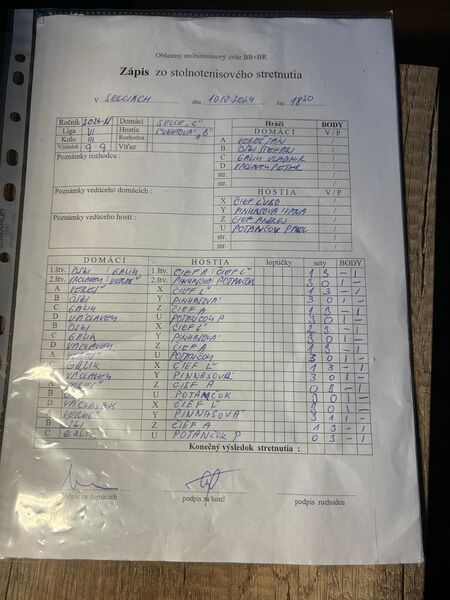 Oblastný stolnotenisový zväz BB+BR
Zápis zo stolnotenisového stretnutia
v SELCIACH dňa 10.10 2024 čas 18 30
Ročník 2024-25 Domáci SELCE "C" Hráči BODY
Liga VI Hostia "B" DOMÁCI V/P
Kolo III Rozhodca A VEREŠ JÁN /
Výsledok 9-9 Víťaz B ÖŠI ŠTEFAN /
Poznámky rozhodcu : C GALIK VLADIMIR /
D VACLAVEK PETER /
str. /
str. /
Poznámky vedúceho domácich : HOSTIA V/P
X CIEF ĽUBO /
Y PINNASOVÁ IVANA /
Poznámky vedúceho hostí : Z CIEF ANDREJ /
U POTANČOK PAVOL /
str. /
DOMÁCI HOSTIA loptičky sety BODY
1.štv. ÖŠI / GALIK 1.štv. CIEF A / CIEF Ľ 1 3 - 1
2.štv. VACLAVEK / VEREŠ 2.štv. PINNASOVÁ POTANČOK 3 0 1 -
A VEREŠ X CIEF Ľ 1 3 - 1
B ÖŠI Y PINNASOVÁ 3 0 1 -
C GALIK Z CIEF A 1 3 - 1
D VÁCLAVEK U POTANČOK P 3 0 1 -
B ÖŠI X CIEF Ľ 3 - 1
C GALIK Y PINNASOVÁ 3 0 1 -
D VACLAVEK Z CIEF A 1 3 - 1
A VEREŠ U POTANČOK 3 0 1 -
C GALIK X CIEF Ľ 1 3 - 1
D VACLAVEK Y PINNASOVÁ 3 0 1 -
A VEREŠ Z CIEF A 0 3 - 1
B ÖŠI U POTANČOK 3 0 1 -
D VACLAVEK X CIEF Ľ 0 1 -
A VEREŠ Y PINNASOVÁ 3 1 1 -
B ÖŠI Z CIEF A 1 3 - 1
C GALIK U POTANČOK P 0 3 - 1
Konečný výsledok stretnutia :
podpis za domácich podpis za hostí podpis rozhodcu